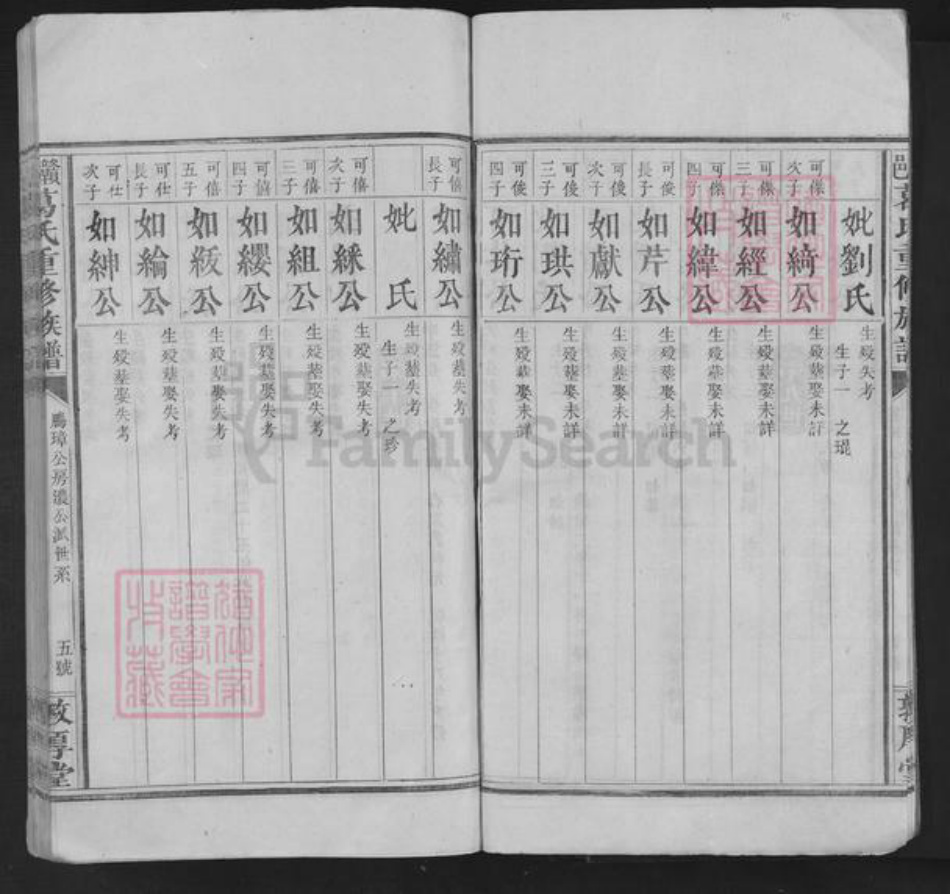 妣劉氏
生歿失考
生子一 之琨
可傑次子
如綺公
生歿葬娶未詳
可傑三子
如經公
生歿葬娶未詳
可傑四子
如緯公
生歿葬娶未詳
可俊長子
如芹公
生歿葬娶未詳
可俊次子
如獻公
生歿葬娶未詳
可俊三子
如珙公
生歿葬娶未詳
可俊四子
如珩公
生歿葬娶未詳
可僖長子
如繡公
生歿葬失考
妣 氏
生歿葬失考
生子一 之珍
可僖次子
如綵公
生歿葬娶失考
可僖三子
如組公
生歿葬娶失考
可僖四子
如纓公
生歿葬娶失考
可僖五子
如綏公
生歿葬娶失考
可仕長子
如綸公
生歿葬娶失考
可仕次子
如紳公
生歿葬娶失考
葛氏重修族譜
鵬璋公房濃公派世系
五號
敦厚堂
FamilySearch
譜學會
收藏